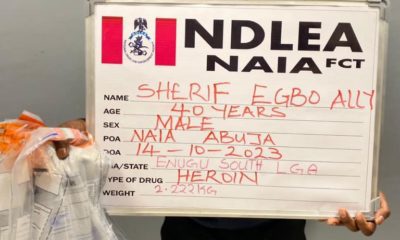 NDLEA
NAIA FCT
NAME SHERIF EGBO ALLY
AGE 40 YEARS
SEX MALE
POA NAIA ABUJA
DOA 14-10-2023
LGA/STATE ENUGU SOUTH LGA
TYPE OF DRUG HEROIN
WEIGHT 2.222KG